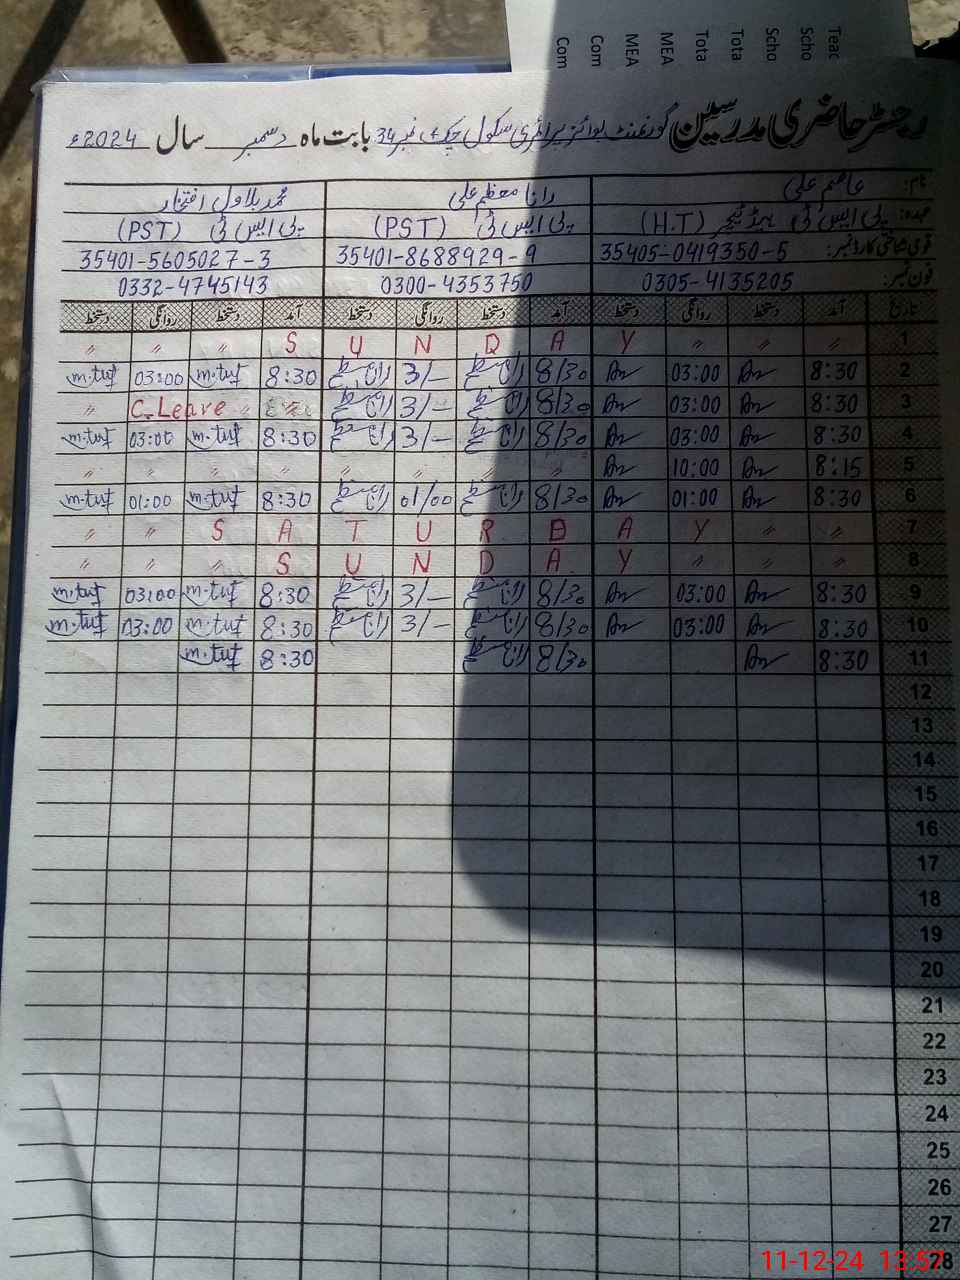 Teac
Scho
Scho
Tota
Tota
MEA
MEA
Com
Com
رجسٹر حاضری مدرسین گورنمنٹ بوائز پرائمری سکول چک نمبر 34 بابت ماہ دسمبر سال 2024ء
نام: عاصم علی رانا معظم علی محمد بلاول افتخار
عہدہ: پی ایس ٹی ہیڈ ٹیچر (H.T) پی ایس ٹی (PST) پی ایس ٹی (PST)
قومی شناختی کارڈ نمبر: 35405-0419350-5 35401-8688929-9 35401-5605027-3
فون نمبر: 0305-4135205 0300-4353750 0332-4745143
تاریخ آمد دستخط روانگی دستخط آمد دستخط روانگی دستخط آمد دستخط روانگی دستخط
〃 〃 〃 S U N D A Y 〃 〃 〃 1
m.tuf 03:00 m.tuf 8:30 3/- 8/30 03:00 8:30 2
〃 C.Leave 〃 〃 3/- 8/30 03:00 8:30 3
m.tuf 03:00 m.tuf 8:30 3/- 8/30 03:00 8:30 4
〃 〃 〃 〃 〃 〃 〃 〃 10:00 8:15 5
m.tuf 01:00 m.tuf 8:30 01/00 8/30 01:00 8:30 6
〃 〃 S A T U R D A Y 〃 〃 7
〃 〃 〃 S U N D A Y 〃 〃 〃 8
m.tuf 03:00 m.tuf 8:30 3/- 8/30 03:00 8:30 9
m.tuf 03:00 m.tuf 8:30 3/- 8/30 03:00 8:30 10
m.tuf 8:30 8/30 8:30 11
12
13
14
15
16
17
18
19
20
21
22
23
24
25
26
27
28
11-12-24 13:57